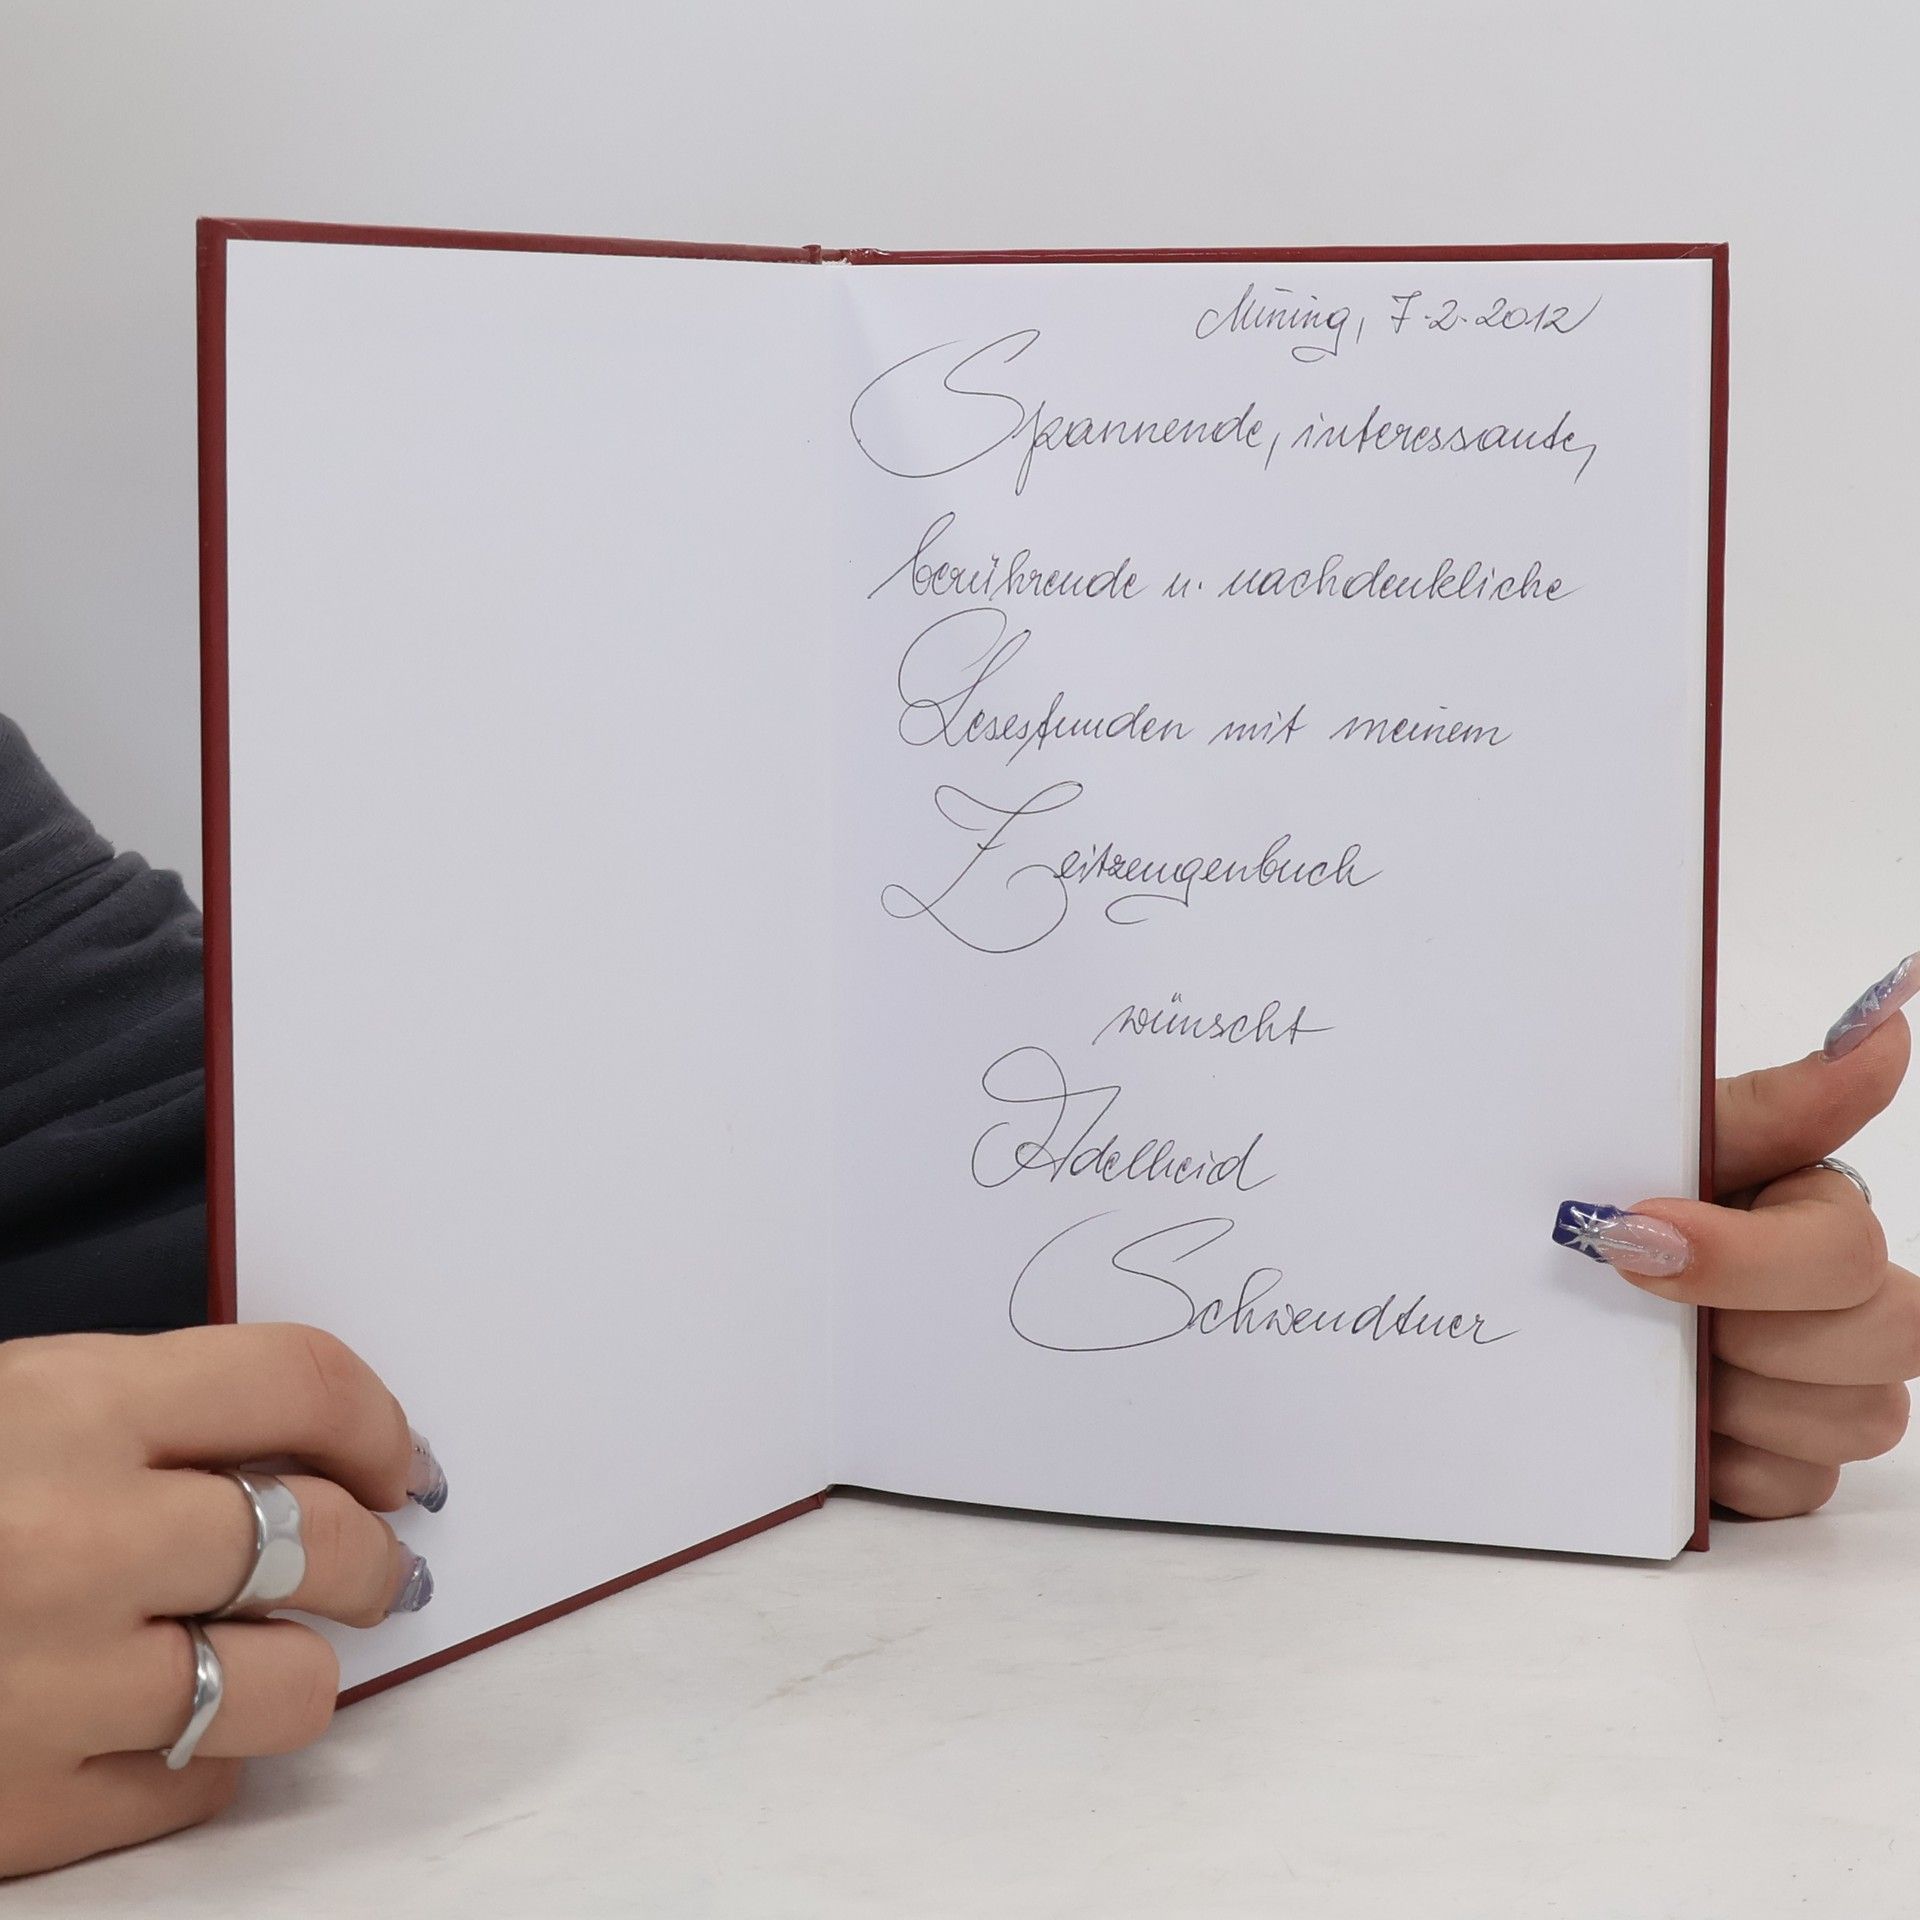 Mining, 7.2.2012
Spannende, interessante,
berührende u. nachdenkliche
Lesestunden mit meinem
Zeitzeugenbuch
wünscht
Adelheid
Schwendtner